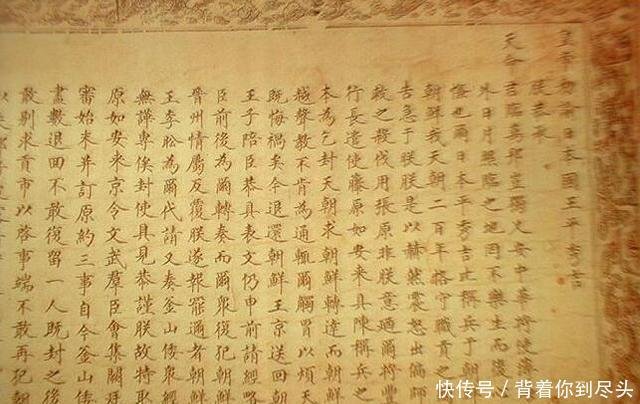 皇帝勅諭日本國王平秀吉
朕恭承
天命君臨萬邦豈獨乂安中華將使薄
外日月照臨之地罔不樂生而後
慊也爾日本平秀吉比稱兵于朝
朝鮮我天朝二百年恪守職貢之
告急于朕朕是以赫然震怒出偏師
救之殺伐用張原非朕意迺爾將豐
行長遣使藤原如安來具陳稱兵之
本為乞封天朝求朝鮮轉達而朝鮮
越聲教不肯為通輒爾觸冒以煩天
既悔禍矣今退還朝鮮王京送回
王子陪臣恭具表文仍申前請經略
臣前後為爾轉奏而爾眾復犯朝鮮
晉州情屬反覆朕遂報罷邇者朝鮮
王李昖為爾代請又奏釜山倭眾經
無譁專俟封使具見恭謹朕故特取
原如安來京令文武羣臣會集闕廷
審始末并訂原約三事自今釜山倭
盡數退回不敢復留一人既封之後
敢別求貢市以啓事端不敢再犯朝
快传号/背着你到尽头